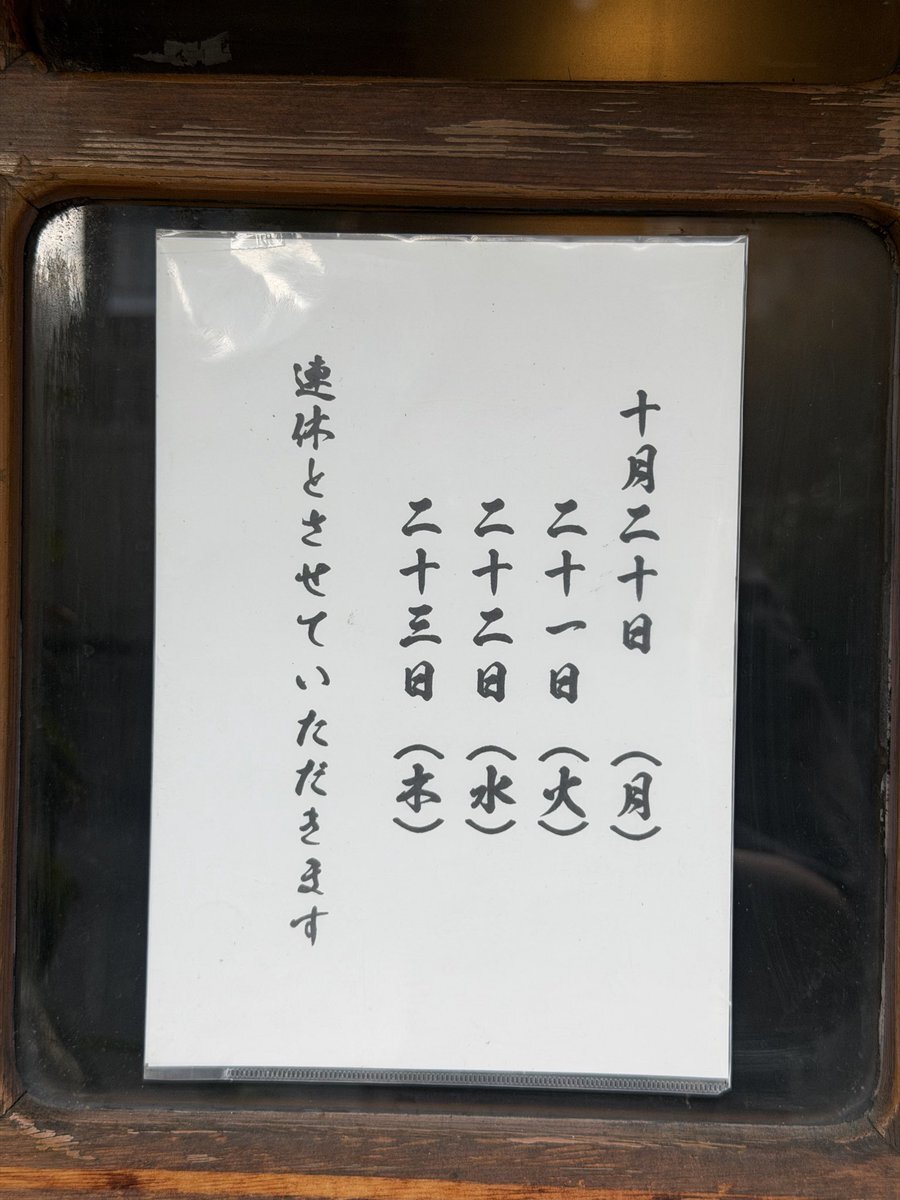 十月二十日（月）
二十一日（火）
二十二日（水）
二十三日（木）
連休とさせていただきます